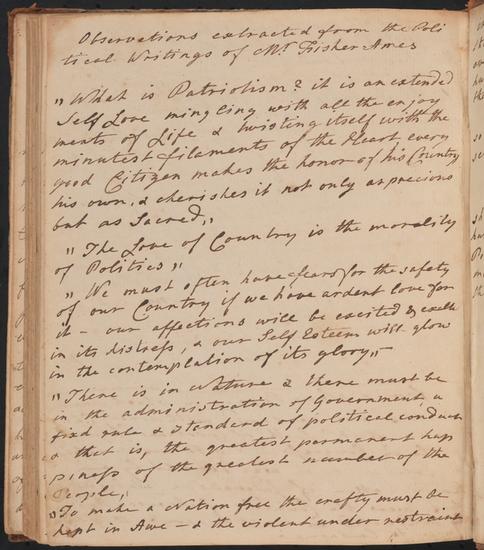 Observations extracted from the Poli
tical Writings of Mr. Fisher Ames
"What is Patriotism? it is an extended
Self Love mingling with all the enjoy
ments of Life & twisting itself with the
minutest filaments of the Heart every
good Citizen makes the honor of his Country
his own, & cherishes it not only as precious
but as Sacred,"
"The Love of Country is the morality
of Politics"
"We must often have fears for the safety
of our Country if we have ardent love for
it - our affections will be excited &
in its distress, & our Self Esteem will glow
in the contemplation of its glory,"
"There is in Nature & there must be
in the administration of Government a
fixd rule & standard of political conduct
& that is, the greatest permanent hap
piness of the greatest number of the
People,
"To make a Nation free the crafty must be
kept in Awe - & the violent under restraint